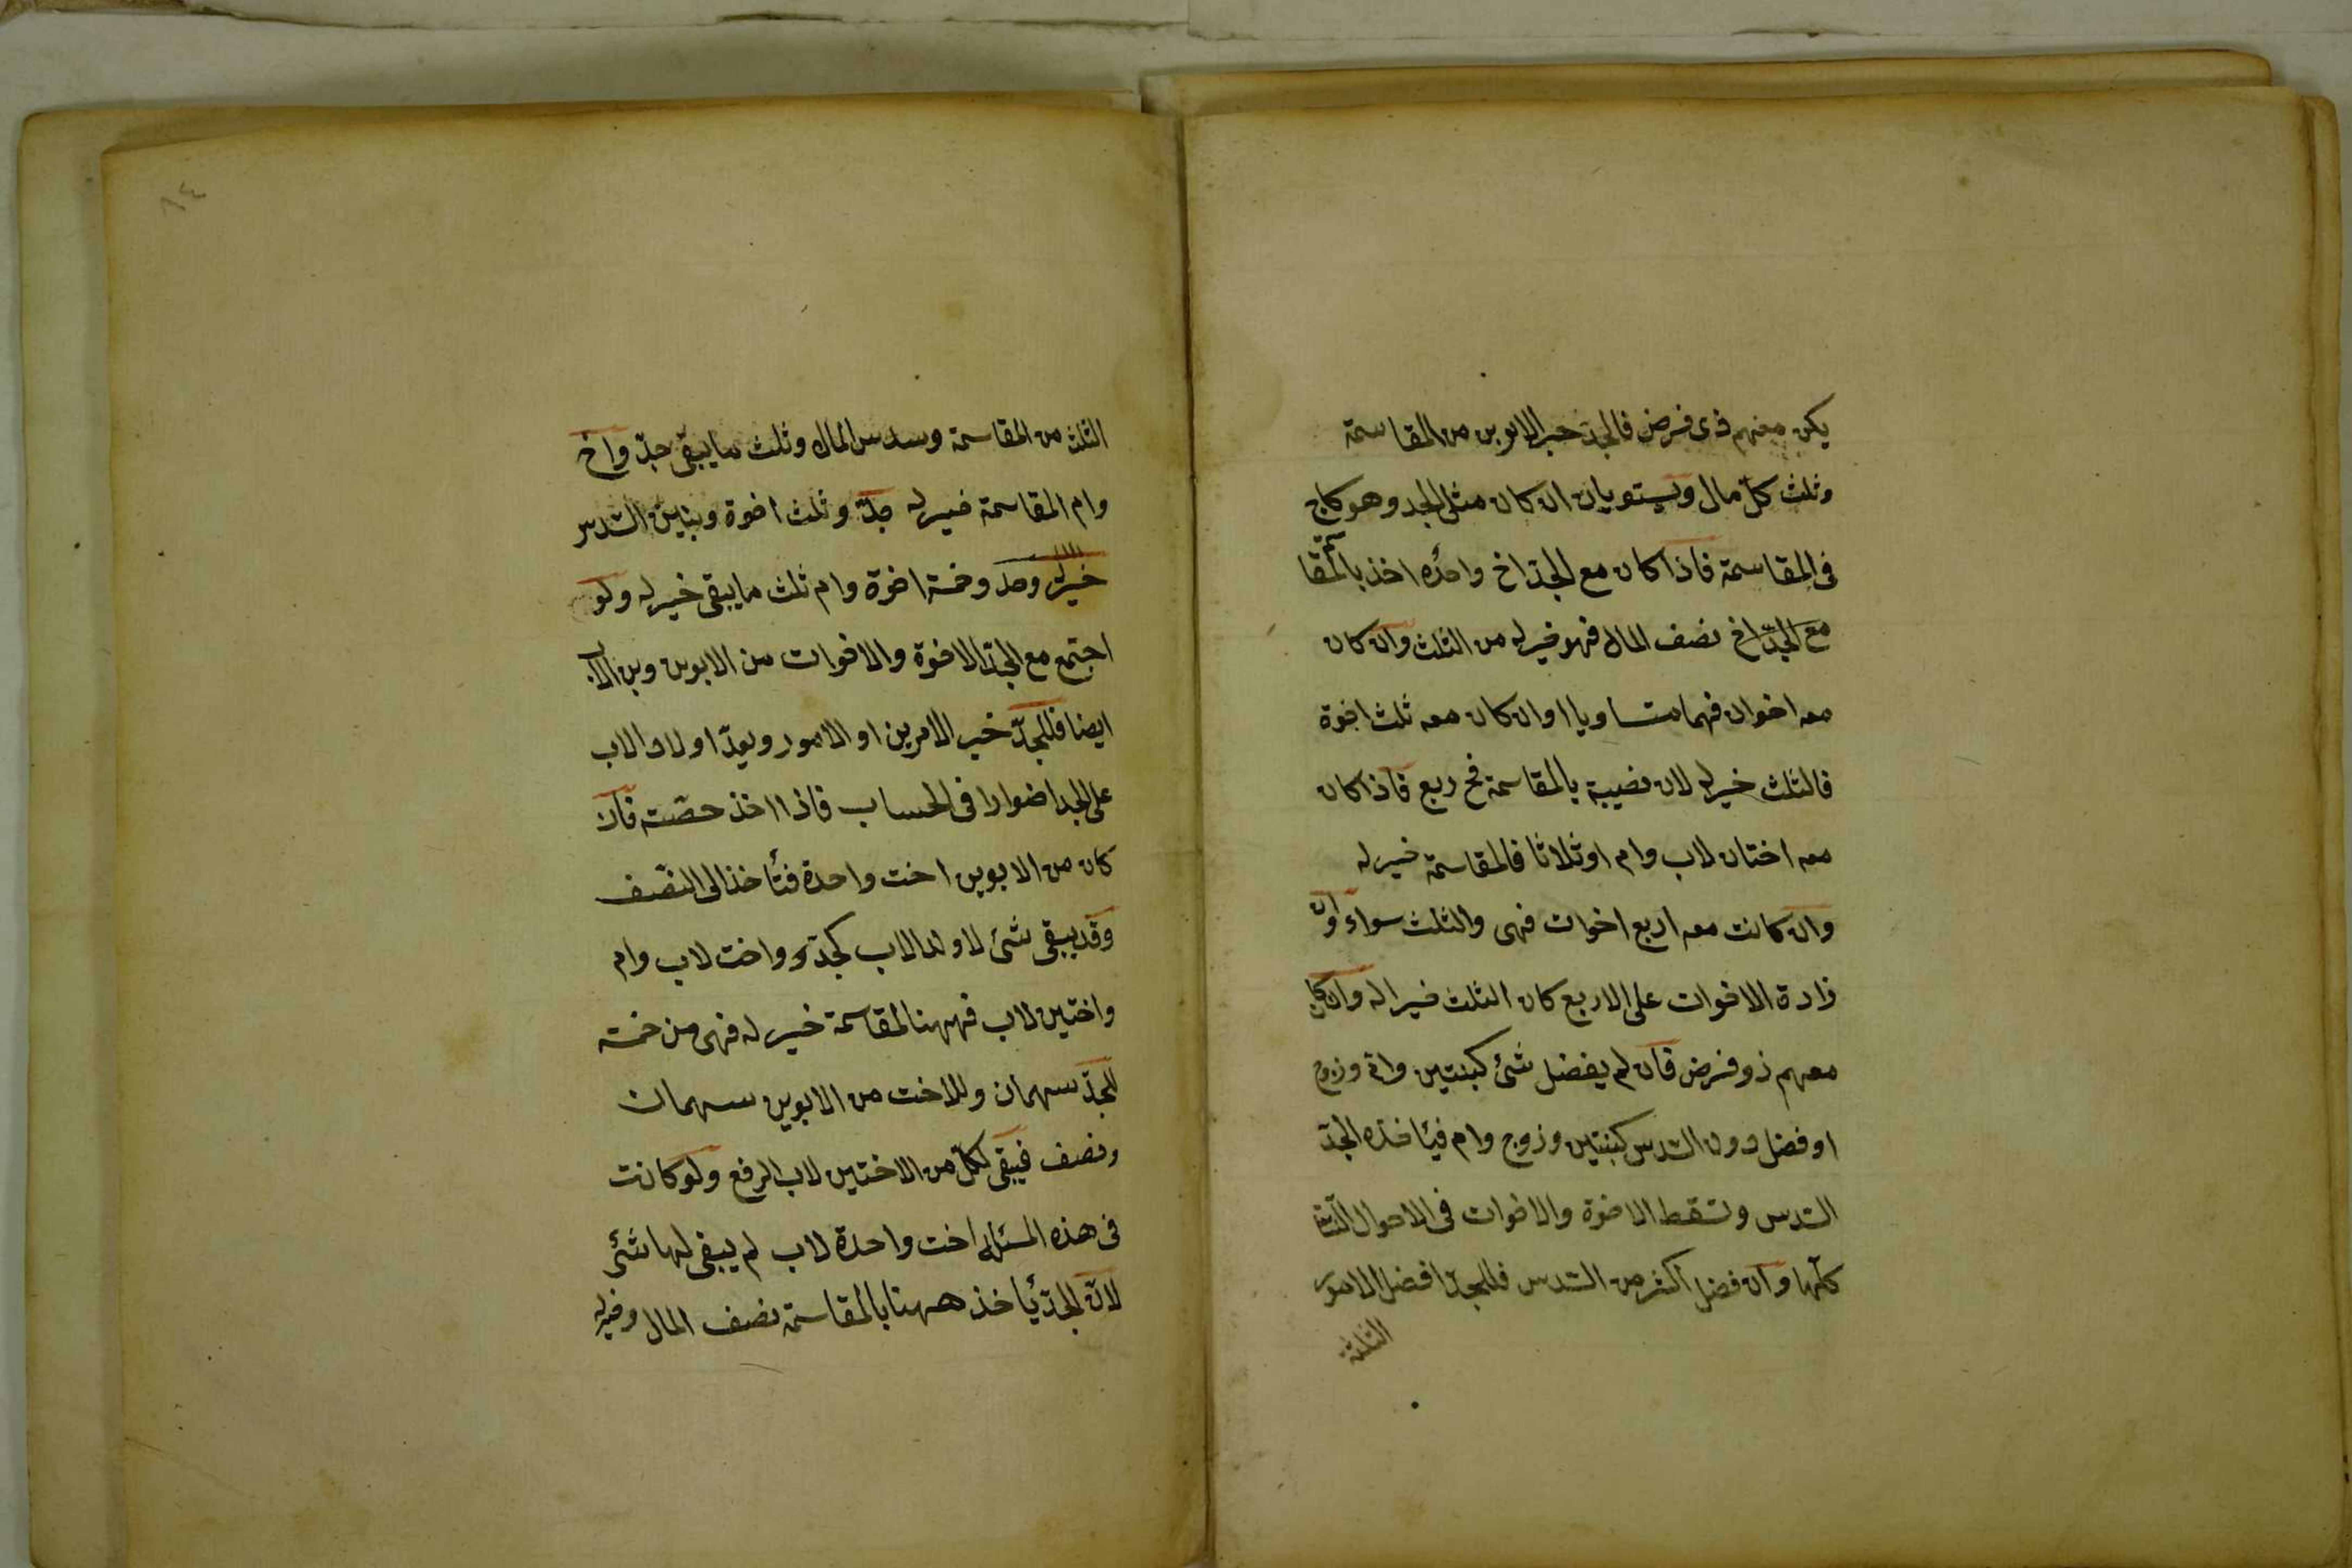 يكن معهم ذى فرض فالجد خير الابوين من المقاسمة
وثلث كل مال ويستويان ان كان مثلى الجد وهو كاخ
فى المقاسمة فاذا كان مع الجد اخ واحده اخذ بالمقا
مع الجد اخ نصف المال فهو خير له من الثلث وان كان
معه اخوان فهما متساويا او ان كان معه ثلث اخوة
فالثلث خير له لان نصيبة بالمقاسمة فح ربع فاذا كان
معه اختان لاب وام او ثلاثا فالمقاسمة خير له
وان كانت معه اربع اخوات فهى والثلث سواء وان
زادة الاخوات على الاربع كان الثلث خيرا له وان كان
معهم ذو فرض فان لم يفضل شئ كبنتين وام وزوج
او فضل دون السدس كبنتين وزوج وام فيأخذه الجد
السدس وتسقط الاخوة والاخوات فى الاحوال الثلثة
كلها وان فضل اكثر من السدس فللجد افضل الامور
الثلثة
٨٤
الثلث من المقاسمة وسدس المال وثلث ما يبقى جد واخ
وام المقاسمة خير له جد وثلث اخوة وبنتين السدس
خير له وجد وخمسة اخوة وام ثلث ما يبقى خير له ولو
اجتمع مع الجد الاخوة والاخوات من الابوين وبن الاب
ايضا فللجد خير الامرين او الامور ويعد اولاد الاب
على الجد اضوارا فى الحساب فاذا اخذ حصته فان
كان من الابوين اخت واحدة فتأخذ الى النصف
وقد يبقى شئ لاولد الاب كجد واخت لاب وام
واختين لاب فههنا المقاسمة خير له فهى من خمسة
للجد سهمان وللاخت من الابوين سهمان
ونصف فيبقى لكل من الاختين لاب الربع ولو كانت
فى هذه المسئلة اخت واحدة لاب لم يبقى لها شئ
لان الجد يأخذ ههنا بالمقاسمة نصف المال وخير له